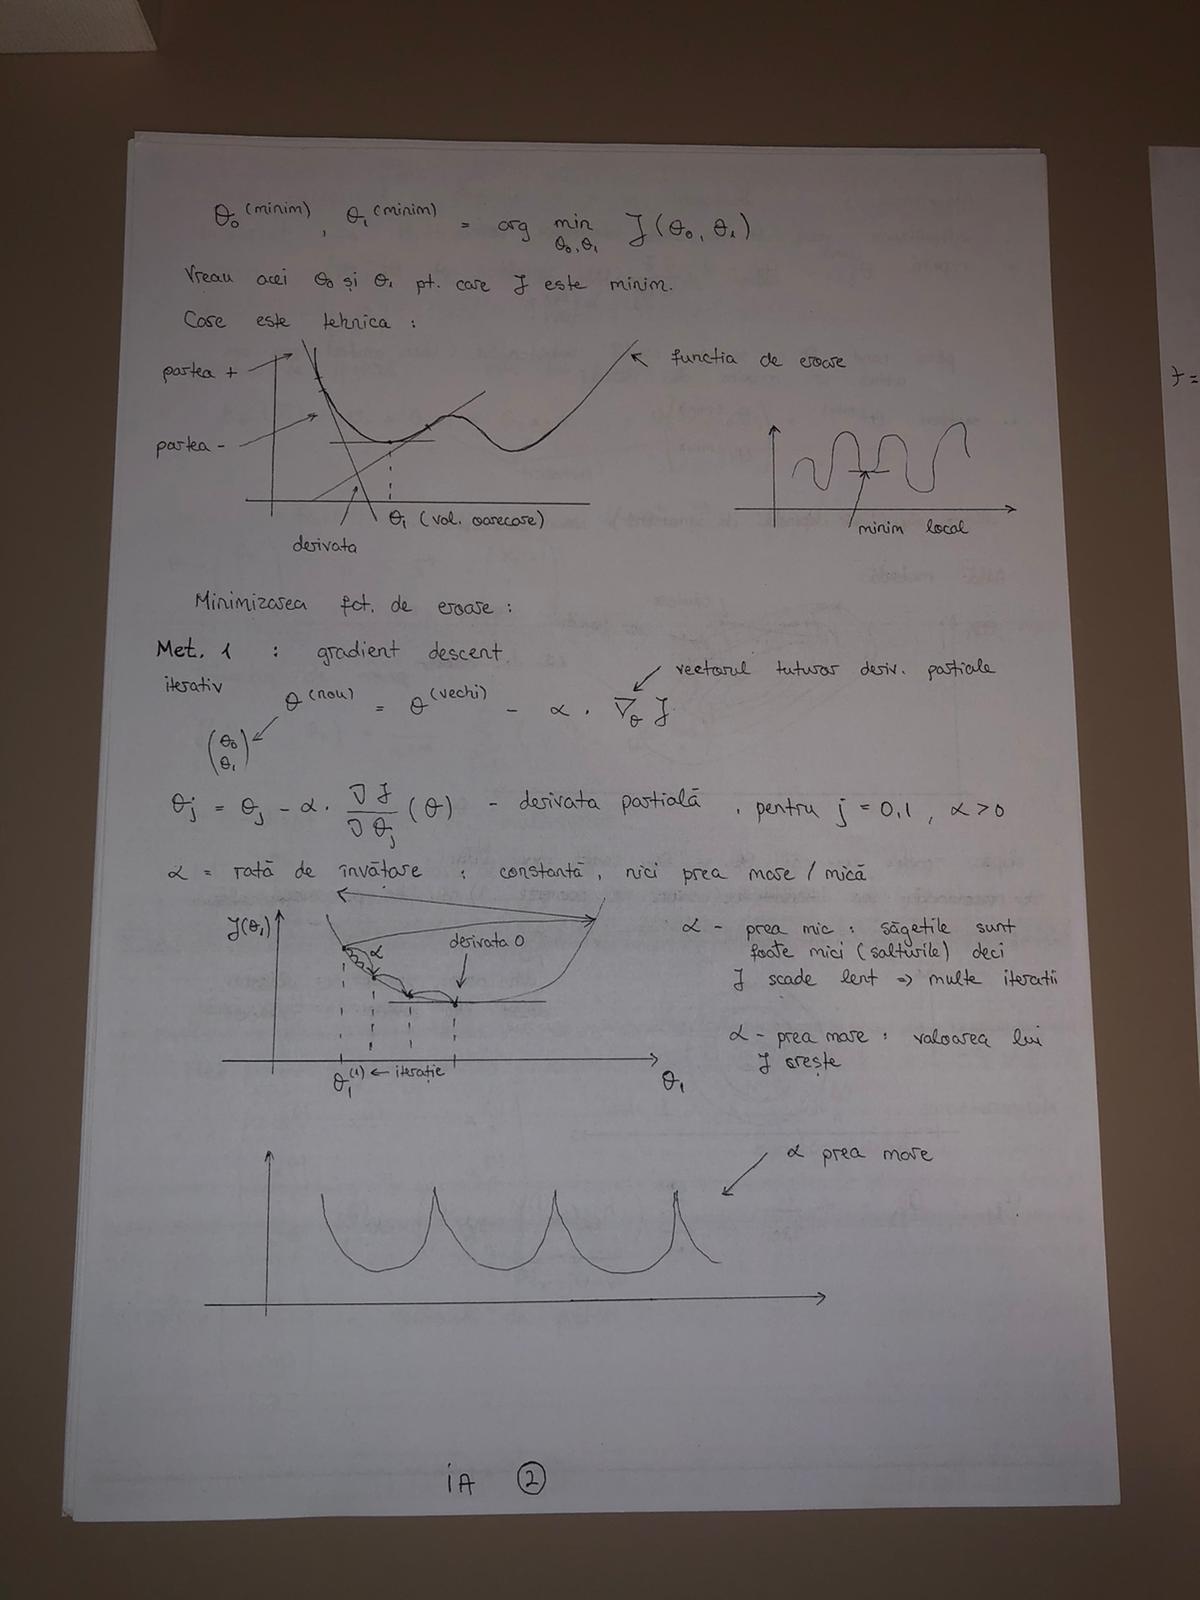 θ₀^(minim), θ₁^(minim) = arg min_{θ₀,θ₁} J(θ₀, θ₁)
Vreau acei θ₀ și θ₁ pt. care J este minim.
Care este tehnica :
partea +
functia de eroare
partea -
θ₁ (val. oarecare)
derivata
minim local
Minimizarea fct. de eroare :
Met. 1 : gradient descent
iterativ
vectorul tuturor deriv. partiale
θ^(nou) = θ^(vechi) - α · ∇_θ J
(θ₀ θ₁)
θj = θj - α · ∂J/∂θj (θ) - derivata partială, pentru j = 0,1, α > 0
α = rată de învătare : constantă, nici prea mare / mică
J(θ₁)
α
derivata 0
θ₁^(1) ← iterație
θ₁
α - prea mic : săgetile sunt
foate mici (salturile) deci
J scade lent => multe iteratii
α - prea mare : valoarea lui
J crește
α prea mare
iA ②
J =